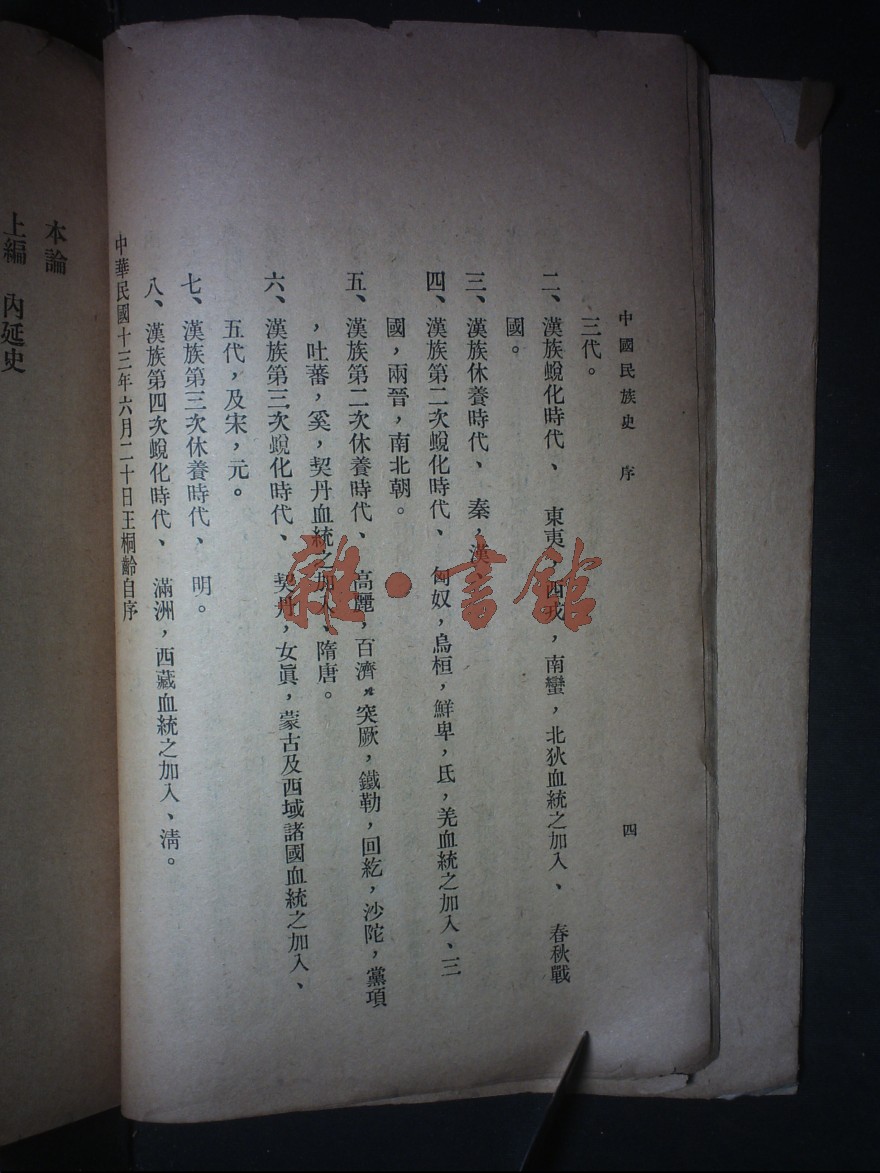 中國民族史 序 四
三代。
二、漢族蛻化時代、 東夷，西戎，南蠻，北狄血統之加入、 春秋戰
國。
三、漢族休養時代、 秦，漢
四、漢族第二次蛻化時代、 匈奴，烏桓，鮮卑，氐，羌血統之加入、三
國，兩晉，南北朝。
五、漢族第二次休養時代、 高麗，百濟，突厥，鐵勒，回紇，沙陀，黨項
，吐蕃，奚，契丹血統之加入、隋唐。
六、漢族第三次蛻化時代、 契丹，女眞，蒙古及西域諸國血統之加入、
五代，及宋，元。
七、漢族第三次休養時代、 明。
八、漢族第四次蛻化時代、 滿洲，西藏血統之加入、淸。
中華民國十三年六月二十日王桐齡自序
本論
上編 內延史
雜·書館